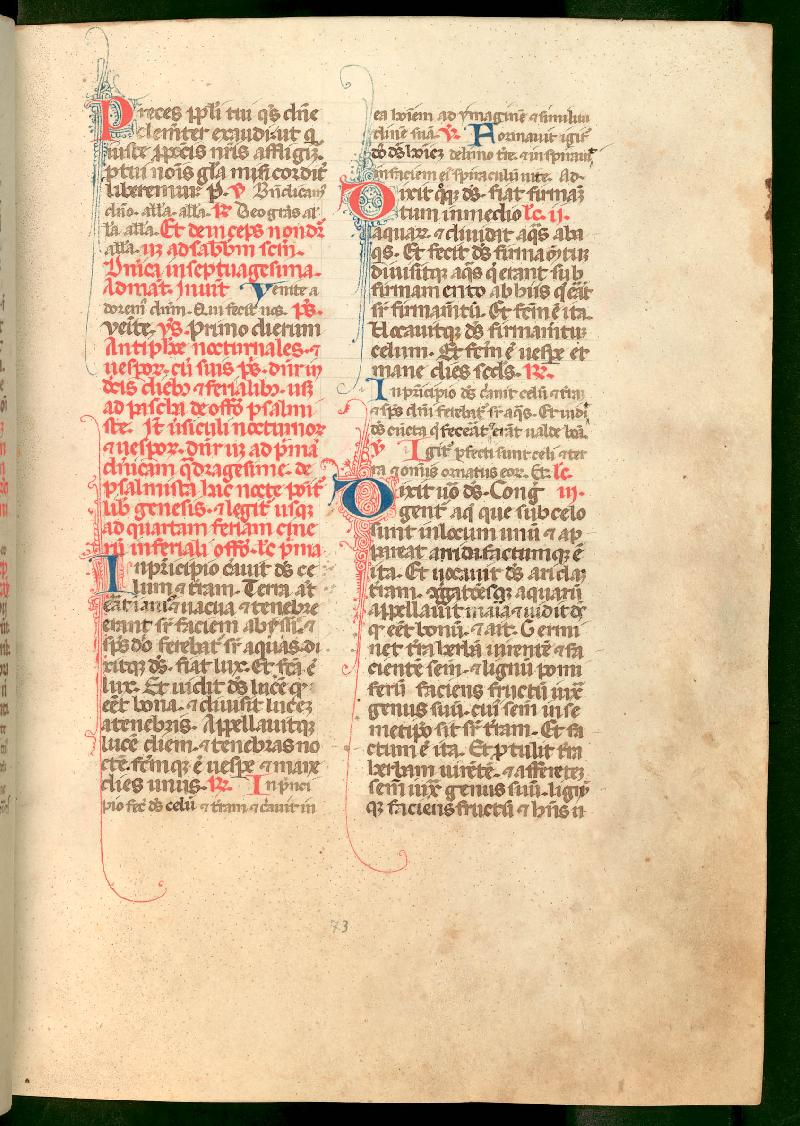 Preces ppli tui qs dñe
clemẽter exaudi. ut q
iuste p pctis nr̃is affligim̃.
p tui noĩs gl̃a mis̃icordit̃
liberemur. P. V Bñdicam̃
dño. all'a. all'a. R Deo gr̃as al
l'a all'a. Et deinceps non dr̃
all'a. uz ad sabbm̃ scm̃.
Dñica in septuagesima.
Ad mat. Inuit Venite a
dorem' dñm. Qui fecit nos. ps.
venite. ys. Primo dierum
Antiph̃e nocturnales. ⁊
uespor. cũ suis ps. dñr in
ocis dieb' ⁊ ferialib'. usq
ad pascha de offõ psalmi
ste. It̃ ũsiculi nocturnor
⁊ uespor. dñr uz ad p̃mã
dñicam q̃dragesime. de
psalmista hac nocte poit̃
lib' genesis. ⁊ legit̃ usq
ad quartam feriam cine
rũ in feriali offõ. lc p̃ma
In p̃ncipio c̃auit ds ce
lum ⁊ t̃ram. Terra aũt
erat inanis ⁊ uacua ⁊ tenebre
erant sr̃ faciem abyssi. ⁊
sps dñi ferebat̃ sr̃ aquas. di
xitq ds. fiat lux. Et fcã ẽ
lux. Et uidit ds lucẽ q
eẽt bona. ⁊ diuisit lucez
a tenebris. Appellauitq
lucẽ diem. ⁊ tenebras no
ctẽ. fcmq ẽ uespe ⁊ mane
dies unus. R. In p̃nci
pio fec̃ ds celũ ⁊ t̃ram ⁊ c̃auit in
ea hoiẽm ad ymaginẽ ⁊ similitu
dinẽ suã. V. Formauit igit̃
ds hoiez de limo t̃re. ⁊ inspirauit
in faciem ei' spiraculũ uite. Ad
Dixit q̃q ds. fiat firmam̃
tum in medio lc. ij.
aquar. ⁊ diuidat aq̃s ab a
q̃s. Et fecit ds firmam̃tũ
diuisitq aq̃s q̃ erant sub
firmamento ab hiis q̃ erãt
sr̃ firmam̃tũ. Et fcm̃ ẽ ita.
Uocauitq ds firmam̃tũ
celum. Et fcm̃ ẽ uespe et
mane dies scds. R.
In p̃ncipio ds c̃auit celũ ⁊ t̃ram
⁊ sps dñi ferebat̃ sr̃ aq̃s. Et uidit
ds cuncta q̃ fecerat ⁊ erãt ualde bõa.
V Igit̃ p̃fecti sunt celi ⁊ ter
ra ⁊ omnis ornatus eor. Et. lc.
Dixit uõ ds. Cong̃ iij.
gent̃ aq̃ que sub celo
sunt in locum unũ ⁊ ap
pareat arida. factumque ẽ
ita. Et uocauit ds aridam
t̃ram. ⁊g̃gat̃oesq aquarũ
appellauit maria ⁊ uidit ds
q eẽt bonũ. ⁊ ait. Germi
net t̃ra herbã uirentẽ ⁊ fa
cientẽ sem̃. ⁊ lignũ pomi
ferũ faciens fructũ iux̃
genus suũ. cui' sem̃ in se
metip̃o sit sr̃ t̃ram. Et fa
ctum ẽ ita. Et p̃tulit t̃ra
herbam uirẽtẽ. ⁊ afferẽtez
sem̃ iux̃ genus suũ. lignũ
q faciens fructũ ⁊ hñs ũ
73